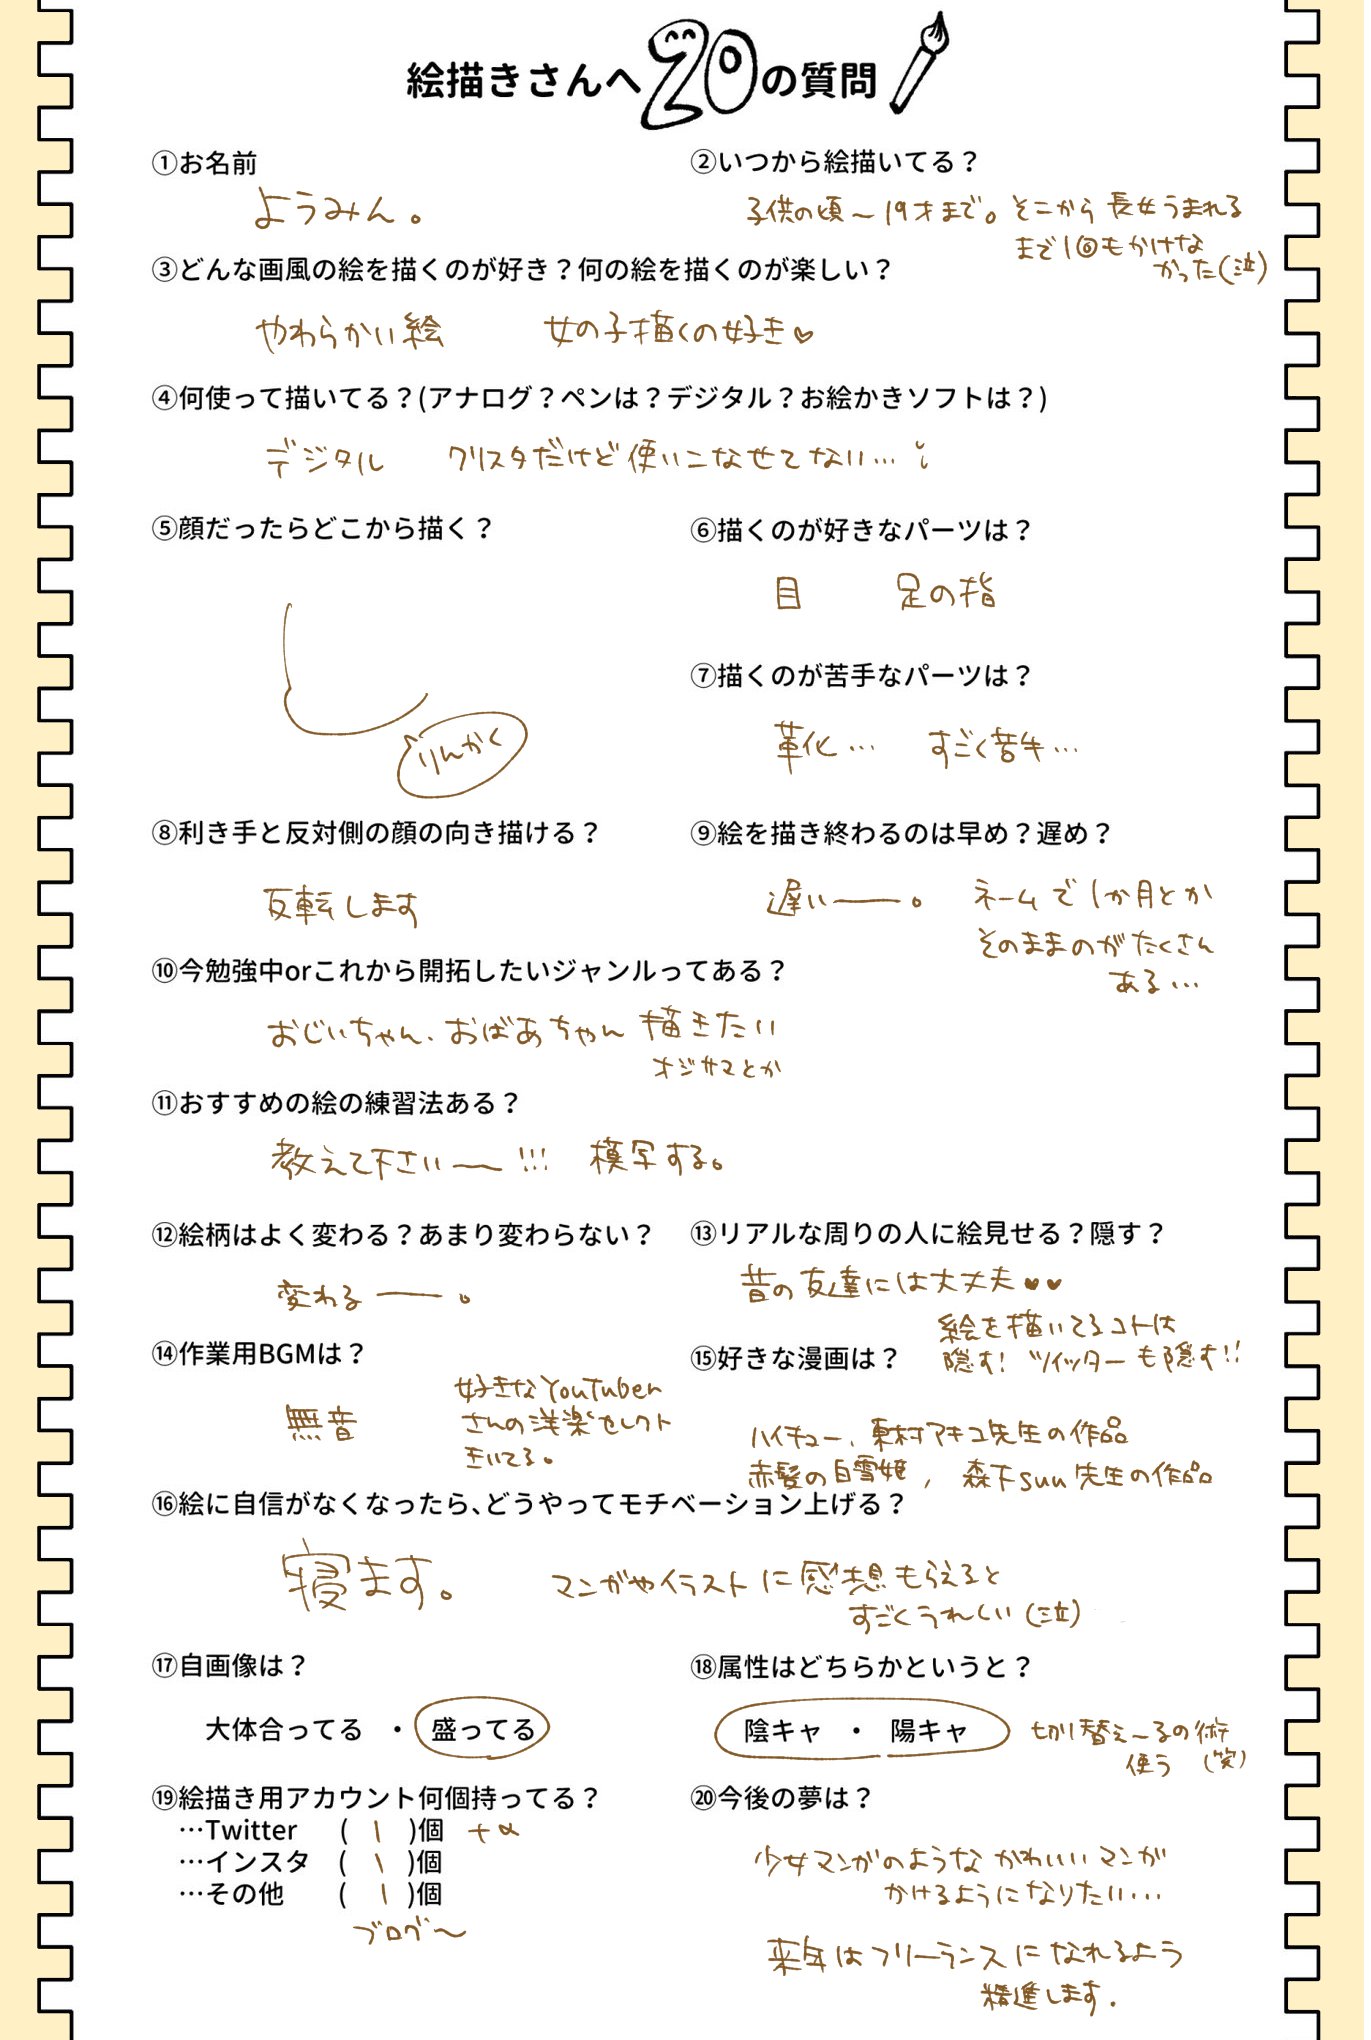 絵描きさんへ20の質問
①お名前
ようみん。
②いつから絵描いてる？
子供の頃〜19才まで。そこから長女うまれる
まで1回もかけな
かった(泣)
③どんな画風の絵を描くのが好き？何の絵を描くのが楽しい？
やわらかい絵 女の子描くの好き♡
④何使って描いてる？(アナログ？ペンは？デジタル？お絵かきソフトは？)
デジタル クリスタだけど使いこなせてない…
⑤顔だったらどこから描く？
りんかく
⑥描くのが好きなパーツは？
目 足の指
⑦描くのが苦手なパーツは？
革化… すごく苦手…
⑧利き手と反対側の顔の向き描ける？
反転します
⑨絵を描き終わるのは早め？遅め？
遅い――。 ネームで1か月とか
そのままのがたくさん
ある…
⑩今勉強中orこれから開拓したいジャンルってある？
おじいちゃん、おばあちゃん描きたい
オジサマとか
⑪おすすめの絵の練習法ある？
教えて下さい〜!!! 模写する。
⑫絵柄はよく変わる？あまり変わらない？
変わる――。
⑬リアルな周りの人に絵見せる？隠す？
昔の友達には大丈夫♥♥
絵を描いてるコトは
隠す! ツイッターも隠す!!
⑭作業用BGMは？
無音
好きなYouTuber
さんの洋楽セレクト
きいてる。
⑮好きな漫画は？
ハイキュー、東村アキコ先生の作品
赤髪の白雪姫, 森下suu先生の作品
⑯絵に自信がなくなったら、どうやってモチベーション上げる？
寝ます。 マンガやイラストに感想もらえると
すごくうれしい(泣)
⑰自画像は？
大体合ってる ・ 盛ってる
⑱属性はどちらかというと？
陰キャ ・ 陽キャ 切り替え〜るの術
使う (笑)
⑲絵描き用アカウント何個持ってる？
…Twitter ( 1 )個 +α
…インスタ ( 1 )個
…その他 ( 1 )個
ブログ〜
⑳今後の夢は？
少女マンガのようなかわいいマンガ
かけるようになりたい…
来年はフリーランスになれるよう
精進します.